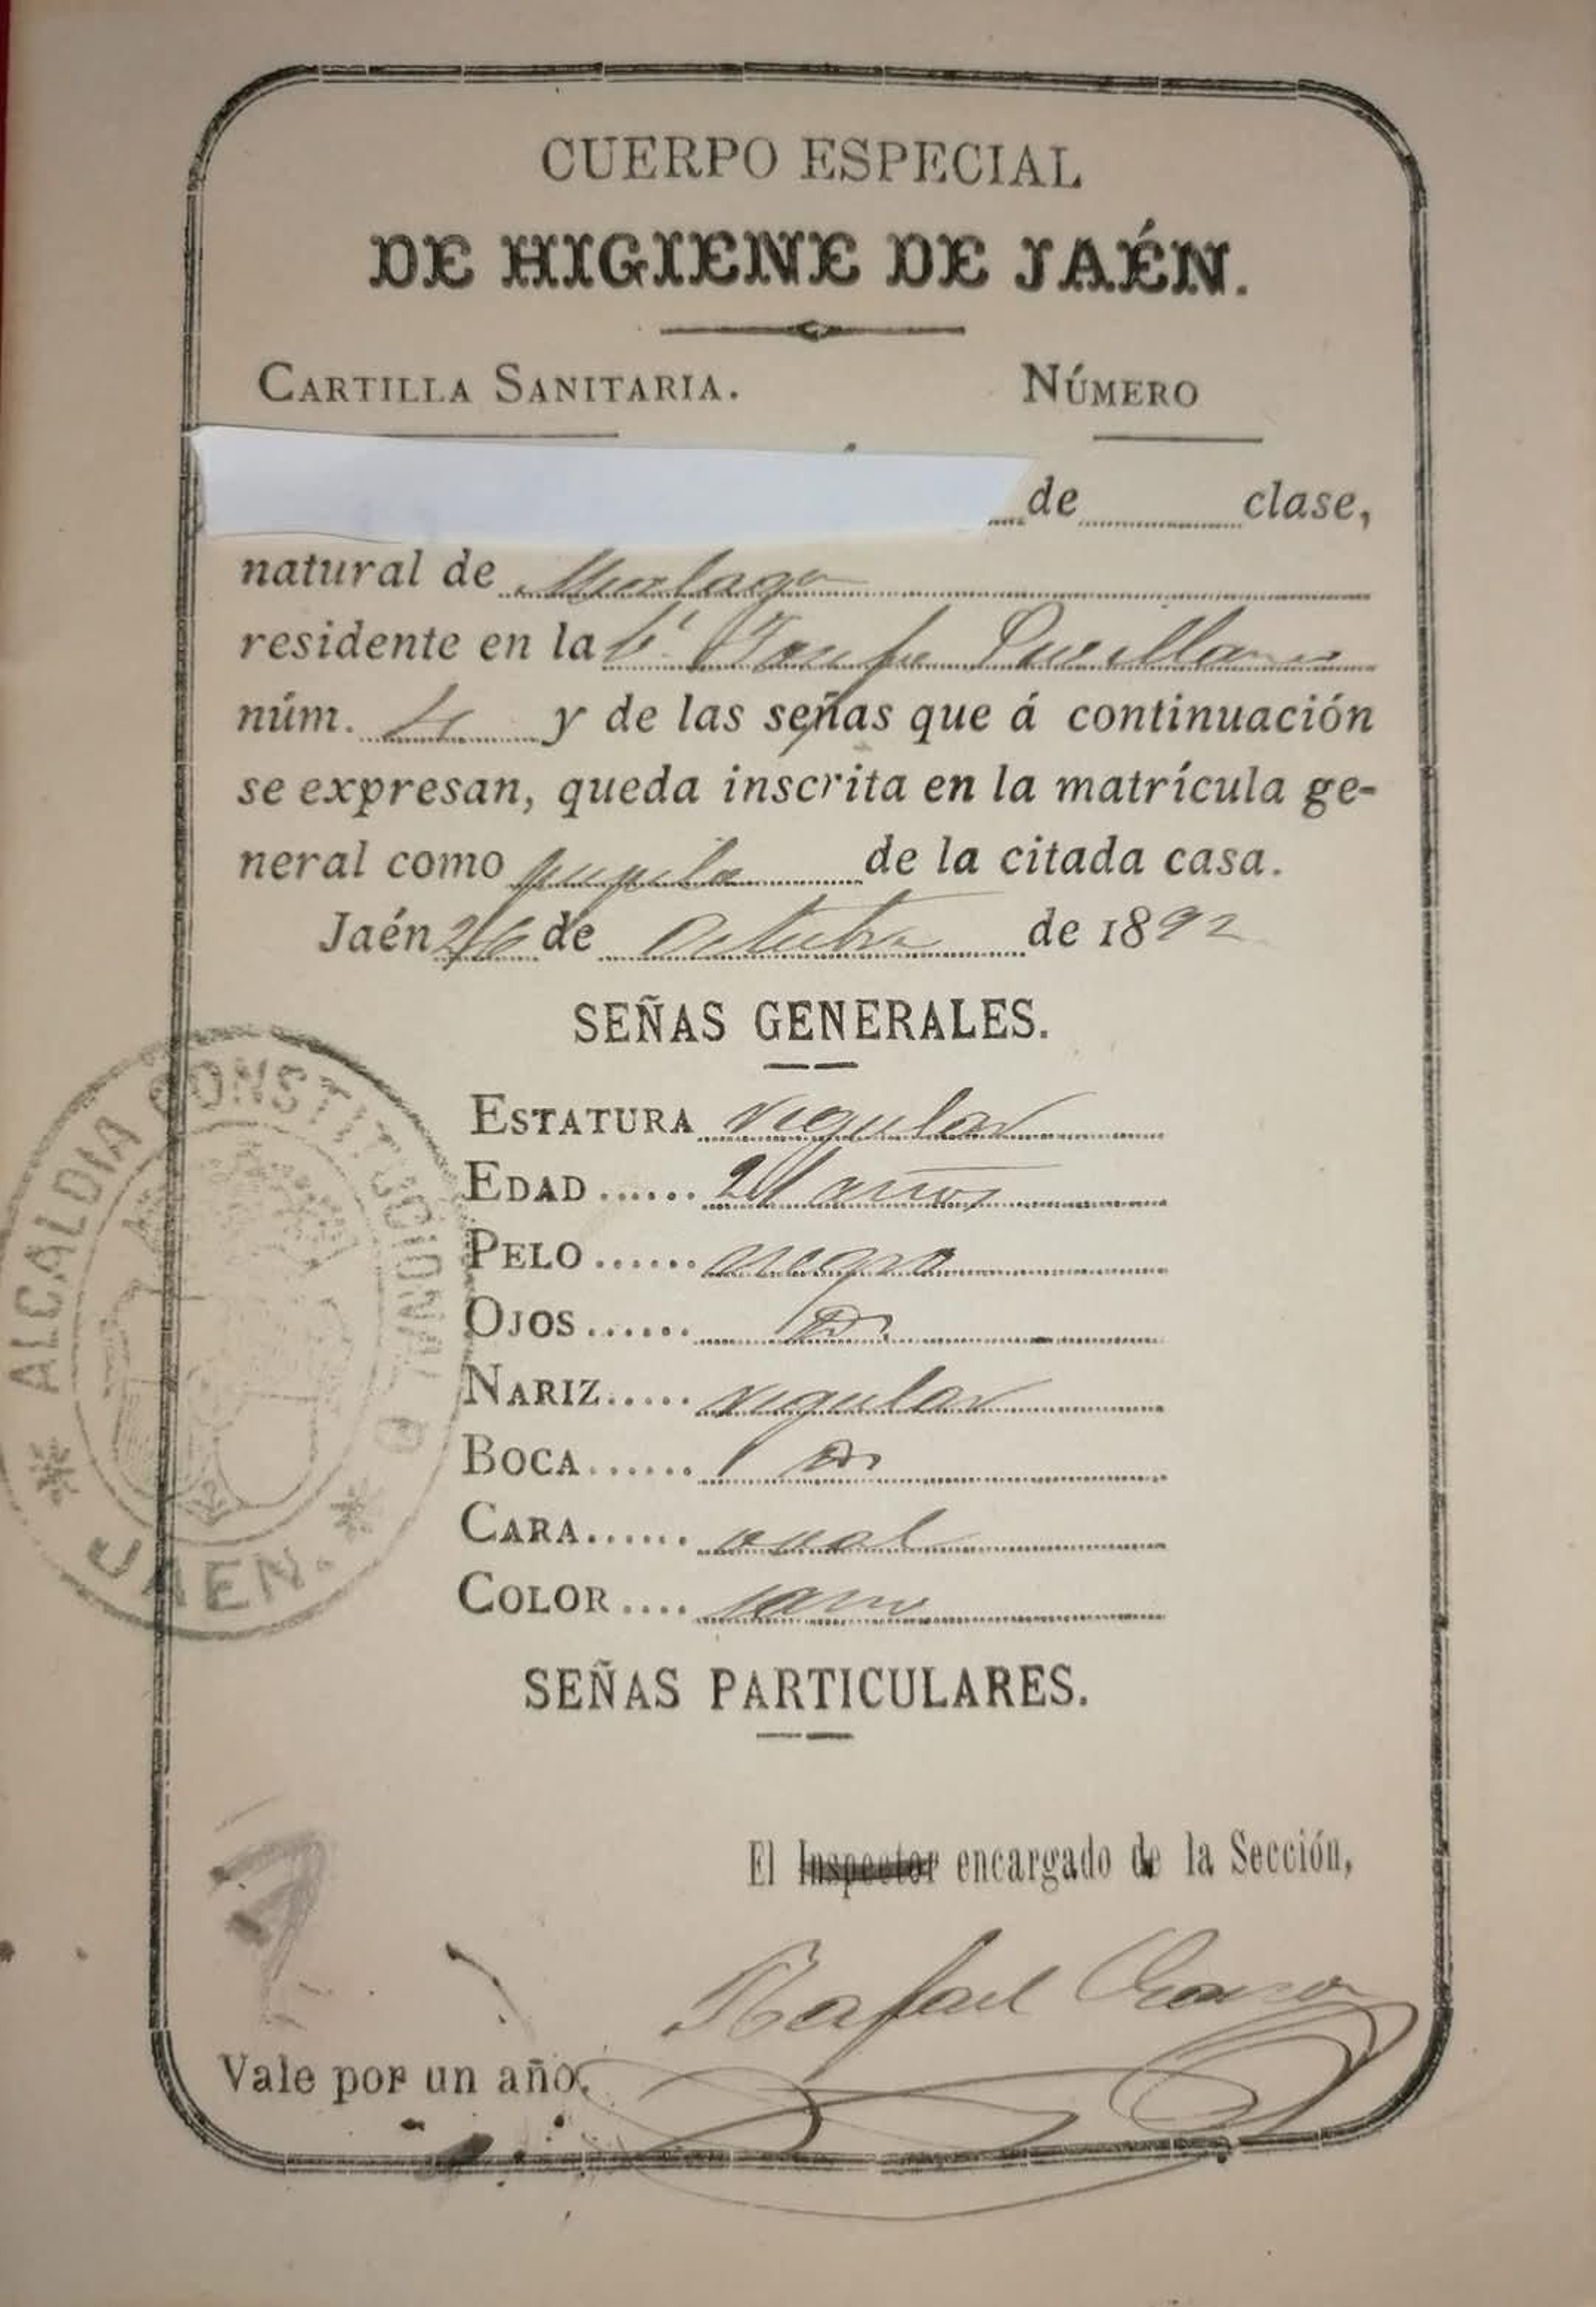 CUERPO ESPECIAL
DE HIGIENE DE JAÉN.
CARTILLA SANITARIA. NÚMERO
de clase,
natural de Malaga
residente en la C.
núm. 4 y de las señas que á continuación
se expresan, queda inscrita en la matrícula ge-
neral como pupila de la citada casa.
Jaén 26 de Octubre de 1892
SEÑAS GENERALES.
ESTATURA regular
EDAD ...... 21 años
PELO ...... negro
OJOS ...... Id.
NARIZ ..... regular
BOCA ...... Id.
CARA ...... oval
COLOR .... sano
ALCALDIA CONSTITUCIONAL D
JAEN.
SEÑAS PARTICULARES.
El Inspector encargado de la Sección,
Rafael
Vale por un año.